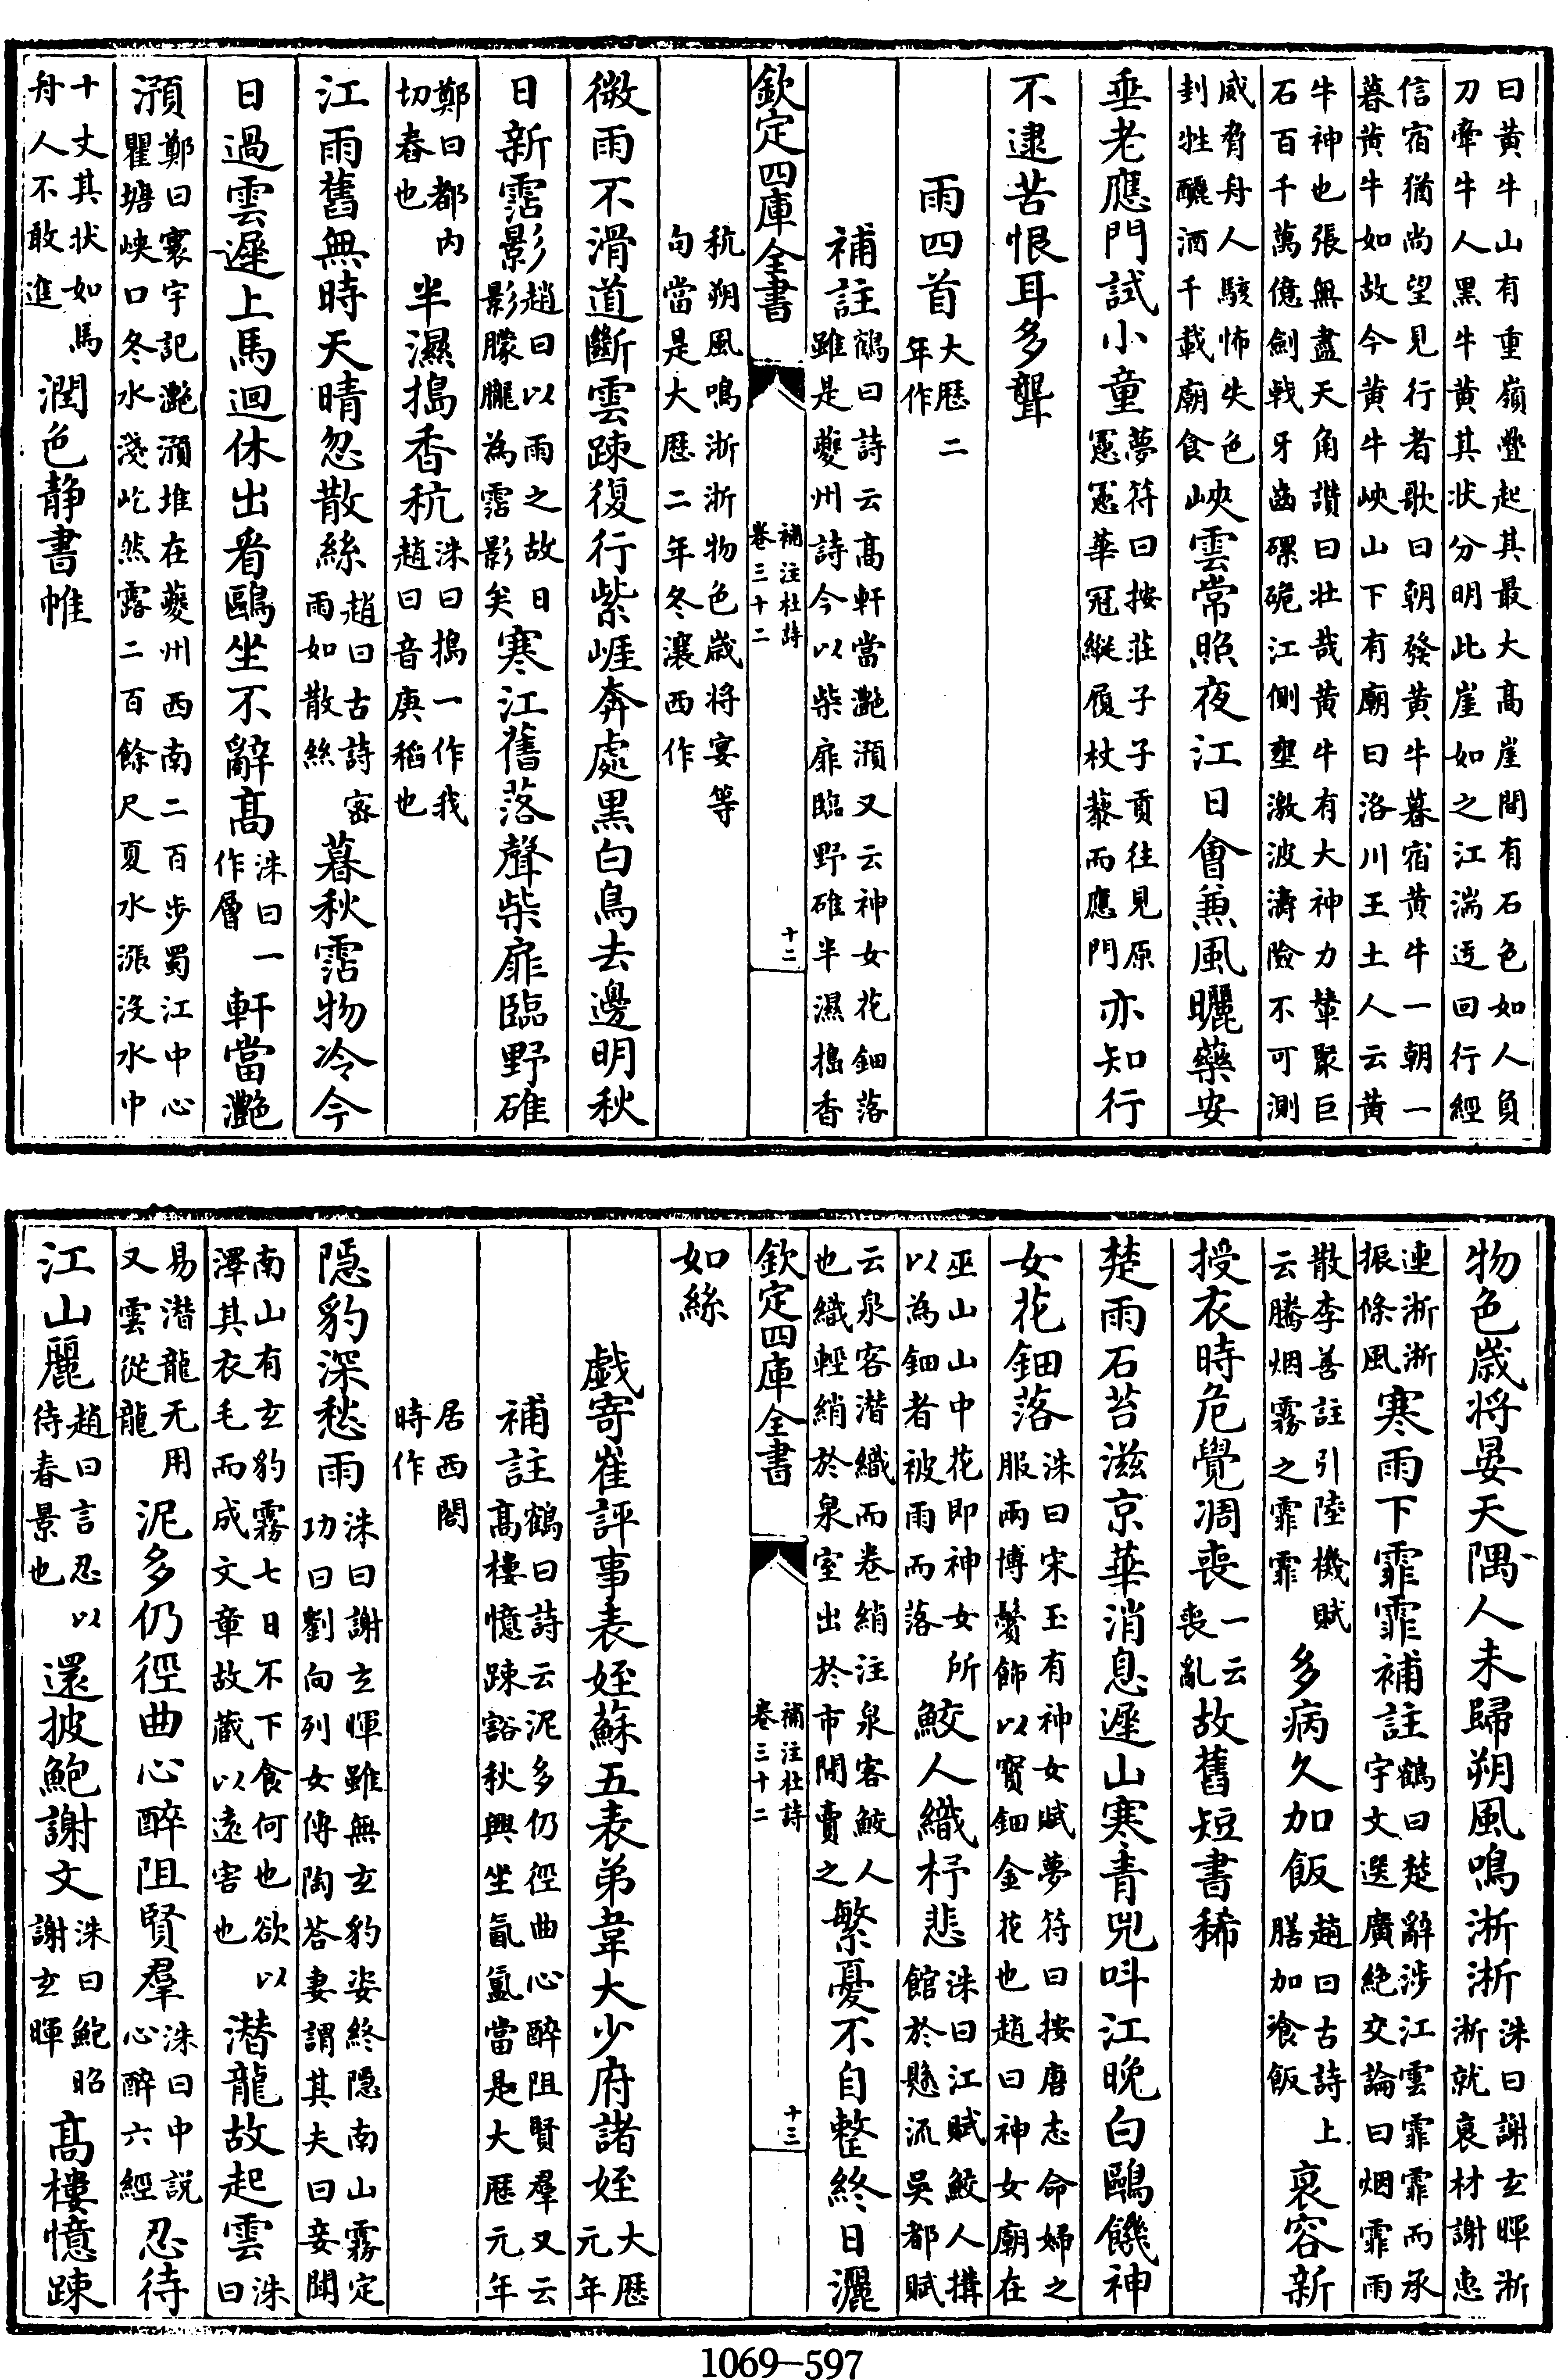 曰黄牛山有重嶺疊起其最大髙崖間有石色如人負
刀牽牛人黒牛黄其状分明此崖如之江湍迂回行經
信宿猶尚望見行者歌曰朝發黄牛暮宿黄牛一朝一
暮黄牛如故今黄牛峽山下有廟曰洛川王土人云黄
牛神也張無盡天角讚曰壮哉黄牛有大神力輦聚巨
石百千萬億劍戟牙齒磥硊江側壅激波濤險不可測
威脅舟人駭怖失色
刲牲釃酒千載廟食
峽雲常照夜江日會兼風曬藥安
垂老應門試小童
夢符曰按莊子子貢往見原
憲憲華冠縰履杖藜而應門
亦知行
不逮苦恨耳多聾
雨四首
大歴二
年作
補註
鶴曰詩云髙軒當灔澦又云神女花鈿落
雖是夔州詩今以柴扉臨野碓半濕搗香
欽定四庫全書
補注杜詩
卷三十二
十二
秔朔風鳴淅淅物色嵗将宴等
句當是大歴二年冬瀼西作
微雨不滑道斷雲踈復行紫崕奔處黒白鳥去邊明秋
日新霑影
趙曰以雨之故日
影朦朧為霑影矣
寒江舊落聲柴扉臨野碓
鄭曰都内
切舂也
半濕搗香秔
洙曰搗一作我
趙曰音庚稻也
江雨舊無時天晴忽散絲
趙曰古詩宻
雨如散絲
暮秋霑物冷今
日過雲遲上馬迴休出看鷗坐不辭髙
洙曰一
作層
軒當灔
澦
鄭曰寰宇記灔澦堆在夔州西南二百步蜀江中心
瞿塘峽口冬水淺屹然露二百餘尺夏水漲沒水中
十丈其状如馬
舟人不敢進
潤色静書帷
物色嵗将晏天隅人未歸朔風鳴淅淅
洙曰謝玄暉淅
淅就衰材謝惠
連淅淅
振條風
寒雨下霏霏補註
鶴曰楚辭涉江雲霏霏而承
宇文選廣絶交論曰烟霏雨
散李善註引陸機賦
云騰烟霧之霏霏
多病久加飯
趙曰古詩上
膳加飱飯
衰容新
授衣時危覺凋喪
一云
喪亂
故舊短書稀
楚雨石苔滋京華消息遲山寒青兕呌江晚白鷗饑神
女花鈿落
洙曰宋玉有神女賦夢符曰按唐志命婦之
服兩博鬢飾以寳鈿金花也趙曰神女廟在
巫山山中花即神女所
以為鈿者被雨而落
鮫人織杼悲
洙曰江賦鮫人搆
館於懸流吳都賦
云泉客潛織而卷綃注泉客鮫人
也織輕綃於泉室出於市間賣之
繁憂不自整終日灑
欽定四庫全書
補注杜詩
卷三十二
十三
如絲
戯寄崔評事表姪蘇五表弟韋大少府諸姪
大歴
元年
補註
鶴曰詩云泥多仍徑曲心醉阻賢羣又云
髙樓憶踈豁秋興坐氤氲當是大歴元年
居西閣
時作
隱豹深愁雨
洙曰謝玄暉雖無玄豹姿終隱南山霧定
功曰劉向列女傳陶荅妻謂其夫曰妾聞
南山有玄豹霧七日不下食何也欲以
澤其衣毛而成文章故藏以逺害也
潛龍故起雲
洙
曰
易潛龍无用
又雲從龍
泥多仍徑曲心醉阻賢羣
洙曰中説
心醉六經
忍待
江山麗
趙曰言忍以
待春景也
還披鮑謝文
洙曰鮑昭
謝玄暉
髙樓憶踈
1069—597